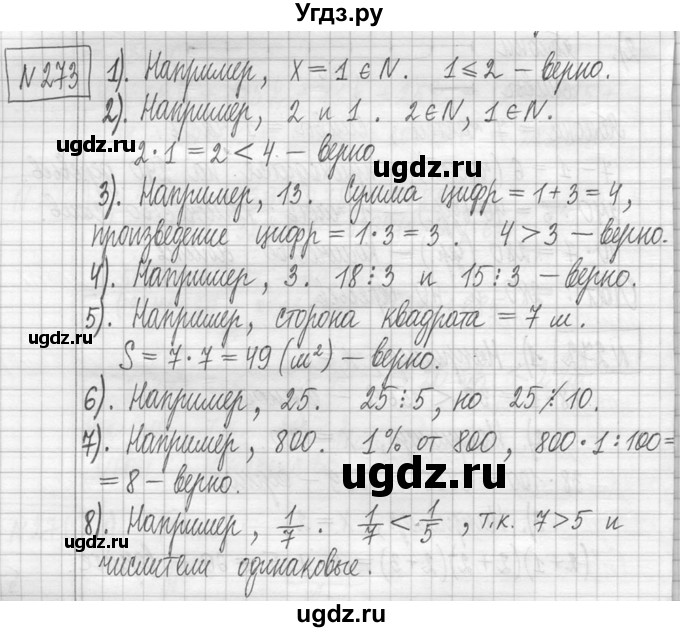 Угдз.ру
№273 1). Например, x = 1 ∈ N. 1 ⩽ 2 – верно.
2). Например, 2 и 1. 2 ∈ N, 1 ∈ N.
2·1 = 2 < 4 – верно
ugdz.ru ugdz.ru
3). Например, 13. Сумма цифр = 1+3=4,
произведение цифр = 1·3 = 3. 4 > 3 – верно.
ugdz.ru
4). Например, 3. 18⋮3 и 15⋮3 – верно.
5). Например, сторона квадрата = 7 м.
ugdz.ru
S = 7·7 = 49 (м²) – верно.
6). Например, 25. 25⋮5, но 25⋮̸10.
7). Например, 800. 1% от 800, 800·1:100=
ugdz.ru
= 8 – верно.
ugdz.ru
8). Например, 1/7. 1/7 < 1/5, т.к. 7>5 и
числители одинаковые.
ugdz.ru
ugdz.ru